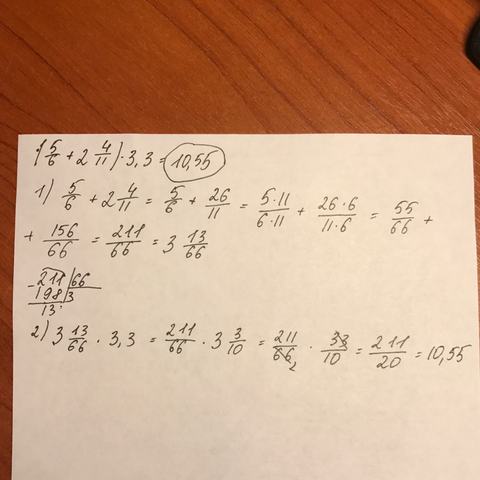 (5/6 + 2 4/11) · 3,3 = 10,55
1) 5/6 + 2 4/11 = 5/6 + 26/11 = 5·11/6·11 + 26·6/11·6 = 55/66 +
+ 156/66 = 211/66 = 3 13/66
- 211 | 66
198 | 3
13
2) 3 13/66 · 3,3 = 211/66 · 3 3/10 = 211/66 2 · 33/10 = 211/20 = 10,55